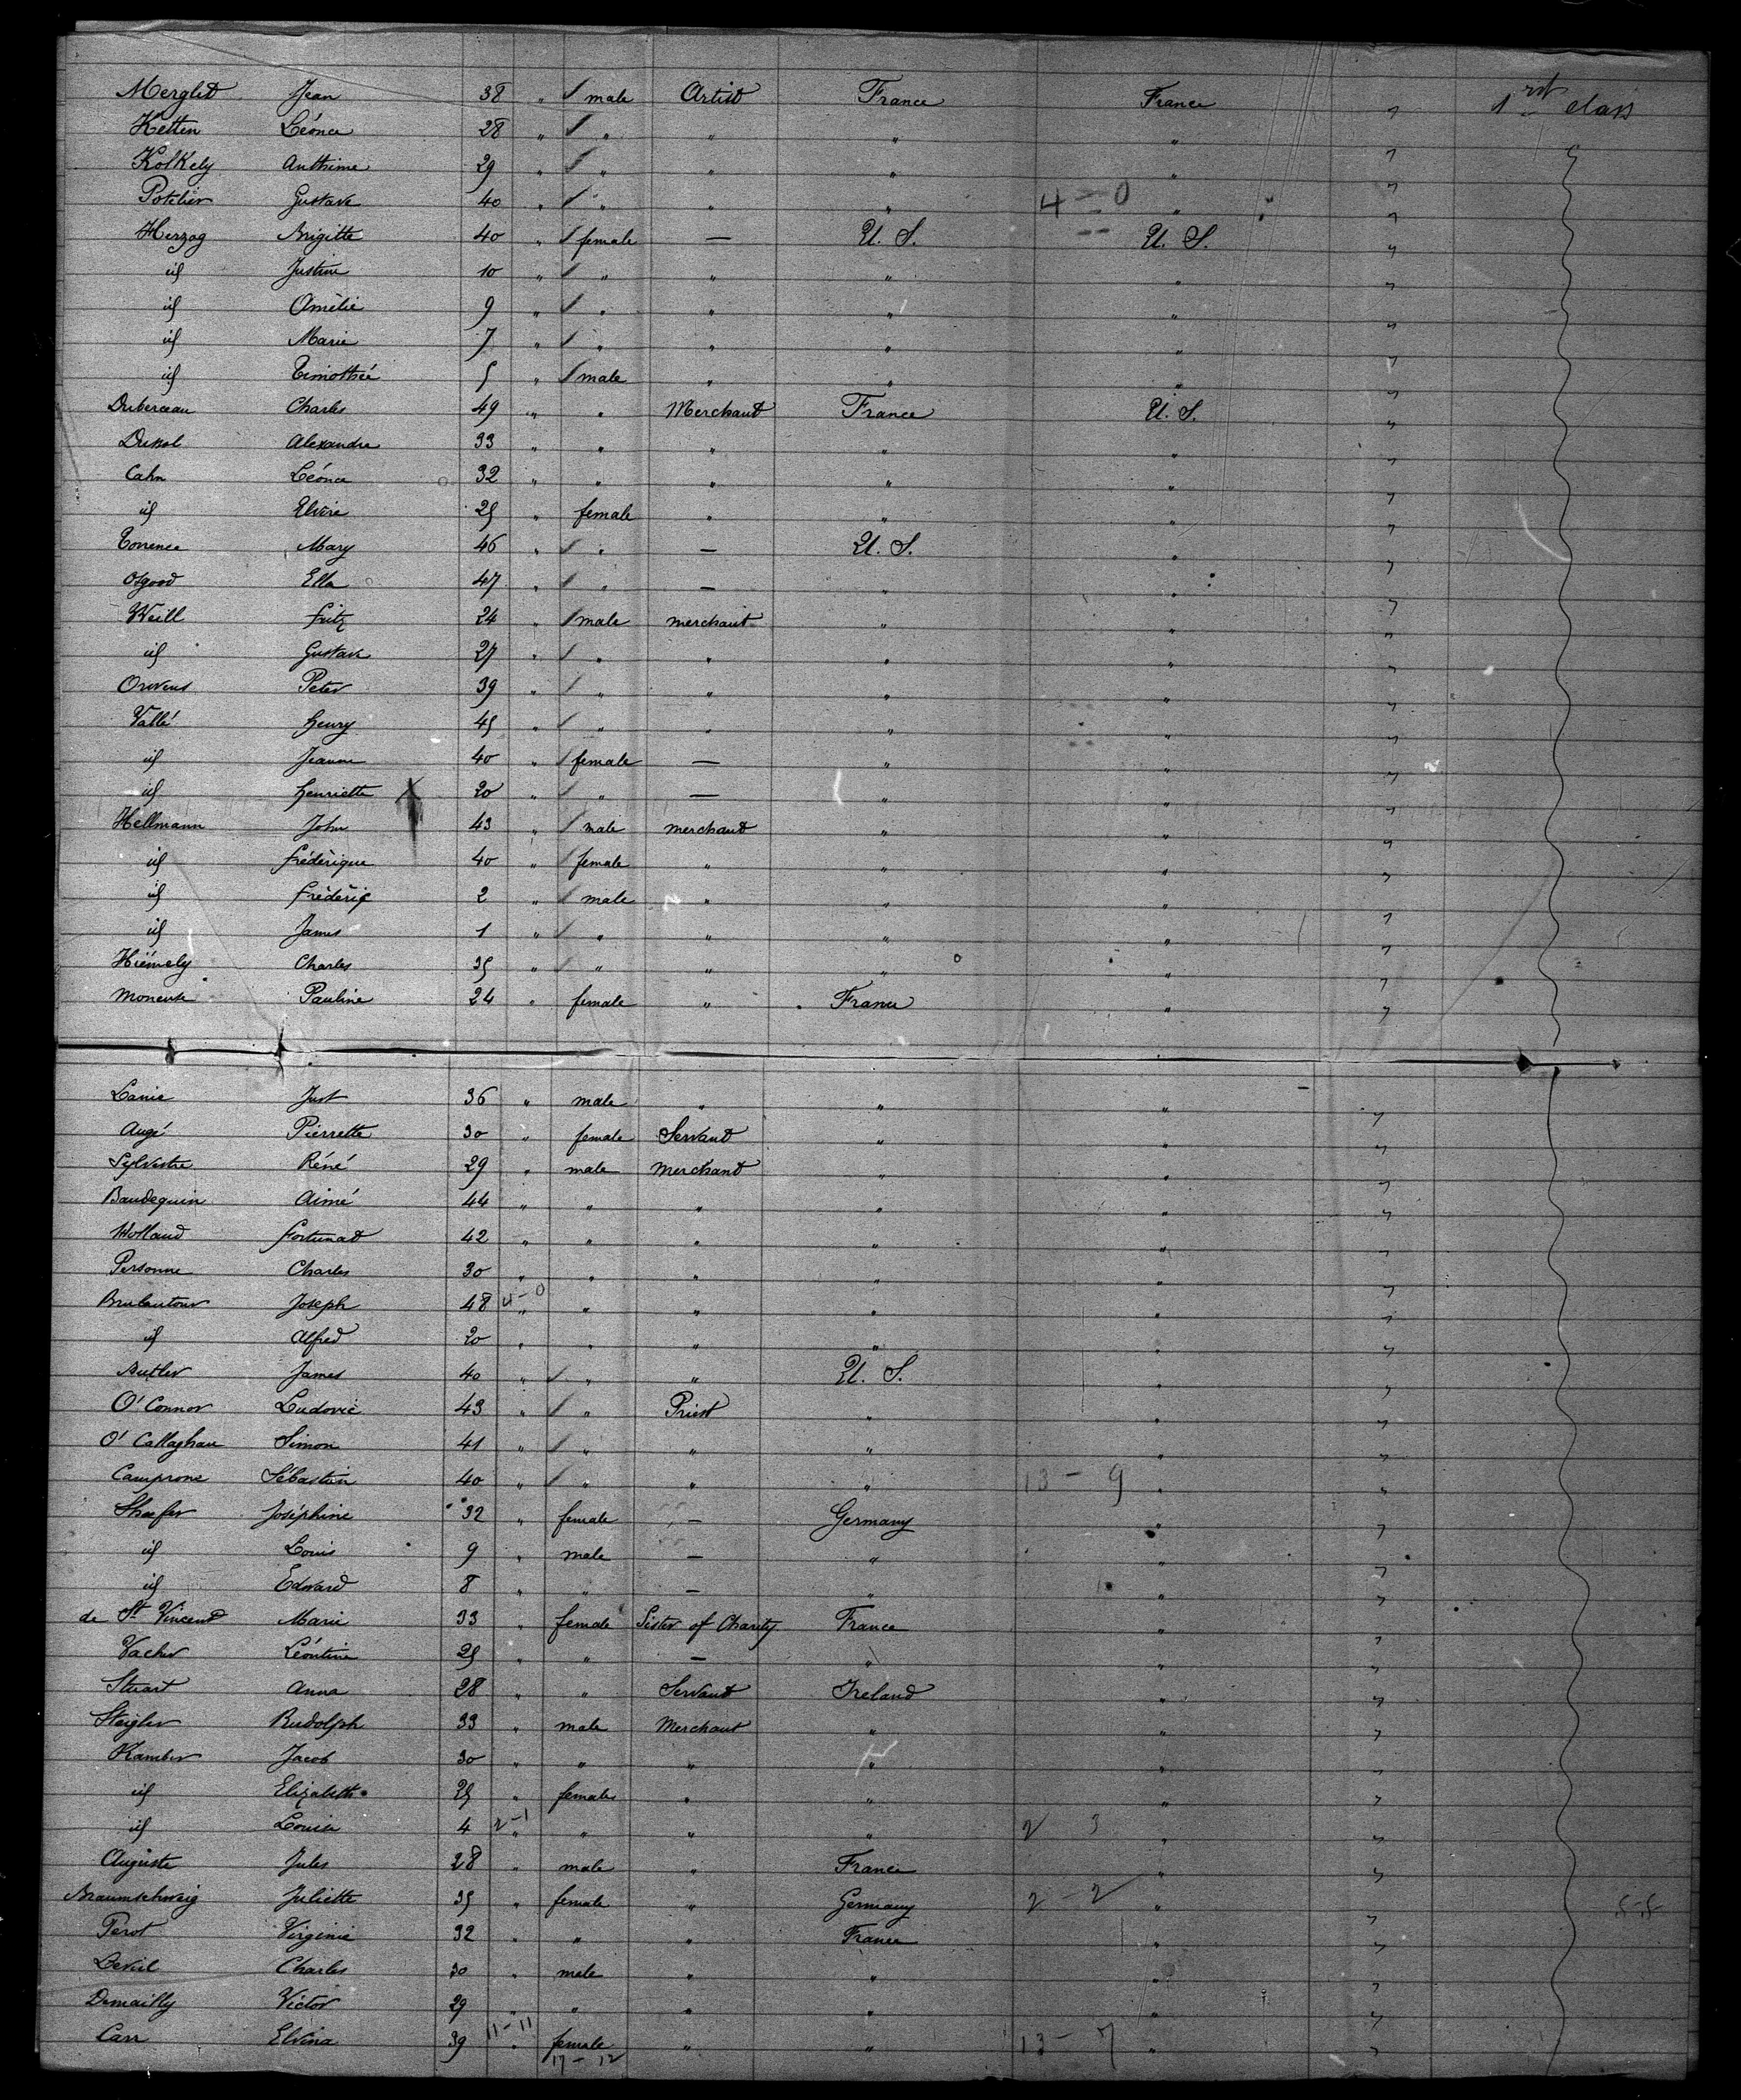 Merglet Jean 38 " male Artist France France " 1rst class
Ketten Léonce 28 " " " " " "
Kolkely Anthime 29 " " " " " "
Potelier Gustave 40 " " " " 4-0 " "
Herzog Brigitte 40 " female — U. S. U. S. "
id Justine 10 " " " " " "
id Amélie 9 " " " " " "
id Marie 7 " " " " " "
id Timothée 5 " male " " " "
Duberceau Charles 49 " " Merchant France U. S. "
Alexandre 33 " " " " " "
Cahn Léonce 32 " " " " " "
id Elvire 25 " female " " " "
Torrence Mary 46 " " — U. S. " "
Osgood Ella 47 " " — " " "
Weill fritz 24 " male merchant " " "
id Gustave 27 " " " " " "
Peter 39 " " " " " "
Vallé henry 45 " " " " " "
id Jeanne 40 " female — " " "
id henriette 20 " " — " " "
Hellmann John 43 " male merchant " " "
id frédérique 40 " female " " " "
id frédéric 2 " male " " " "
id James 1 " " " " " "
Hiémely Charles 35 " " " " " "
Pauline 24 " female " France " "
Lanie Just 36 " male " " " "
Augé Pierrette 30 " female Servant " " "
Sylvestre Réné 29 " male Merchant " " "
Baudequin Aimé 44 " " " " " "
Wolland fortunat 42 " " " " " "
Personne Charles 30 " " " " " "
Brulautour Joseph 48 4-0 " " " " " "
id Alfred 20 " " " " " "
Butler James 40 " " " U. S. " "
O'Connor Ludovic 43 " " Priest " " "
O'Callaghan Simon 41 " " " " " "
Camprone Sébastien 40 " " " " 13-9 " "
Shaefer Joséphine 32 " female — Germany " "
id Louis 9 " male — " " "
id Edward 8 " " — " " "
de St Vincent Marie 33 " female Sister of Charity France " "
Vacher Léontine 25 " " — " " "
Stuart Anna 28 " " Servant Ireland " "
Steigler Rudolph 33 " male Merchant " " "
Kamber Jacob 30 " " " " " "
id Elizabeth 25 " female " " " "
id Louise 4 2-1 " " " " 2 3 " "
Auguste Jules 28 " male " France " "
Braumschweig Juliette 35 " female " Germany 2-2 " " 5-5
Perot Virginie 32 " " " France " "
Charles 30 " male " " " "
Demailly Victor 29 " " " " " "
Carr Elvina 39 11-11 " female " " 13-7 " "
17-12